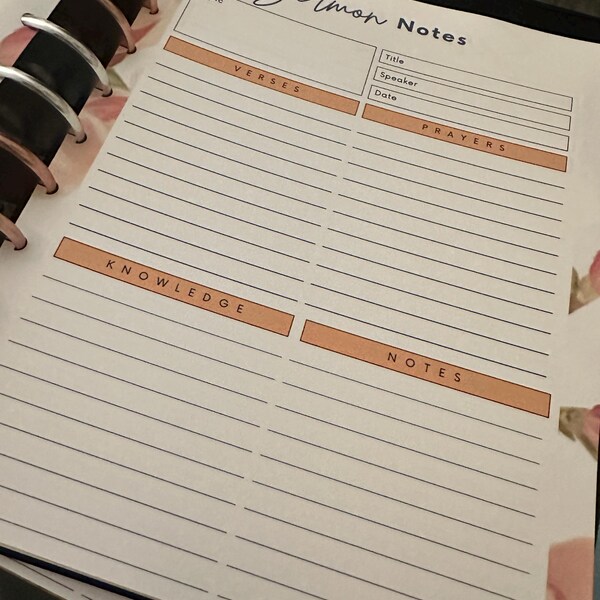 Notes
Title
Speaker
Date
VERSES
PRAYERS
KNOWLEDGE
NOTES